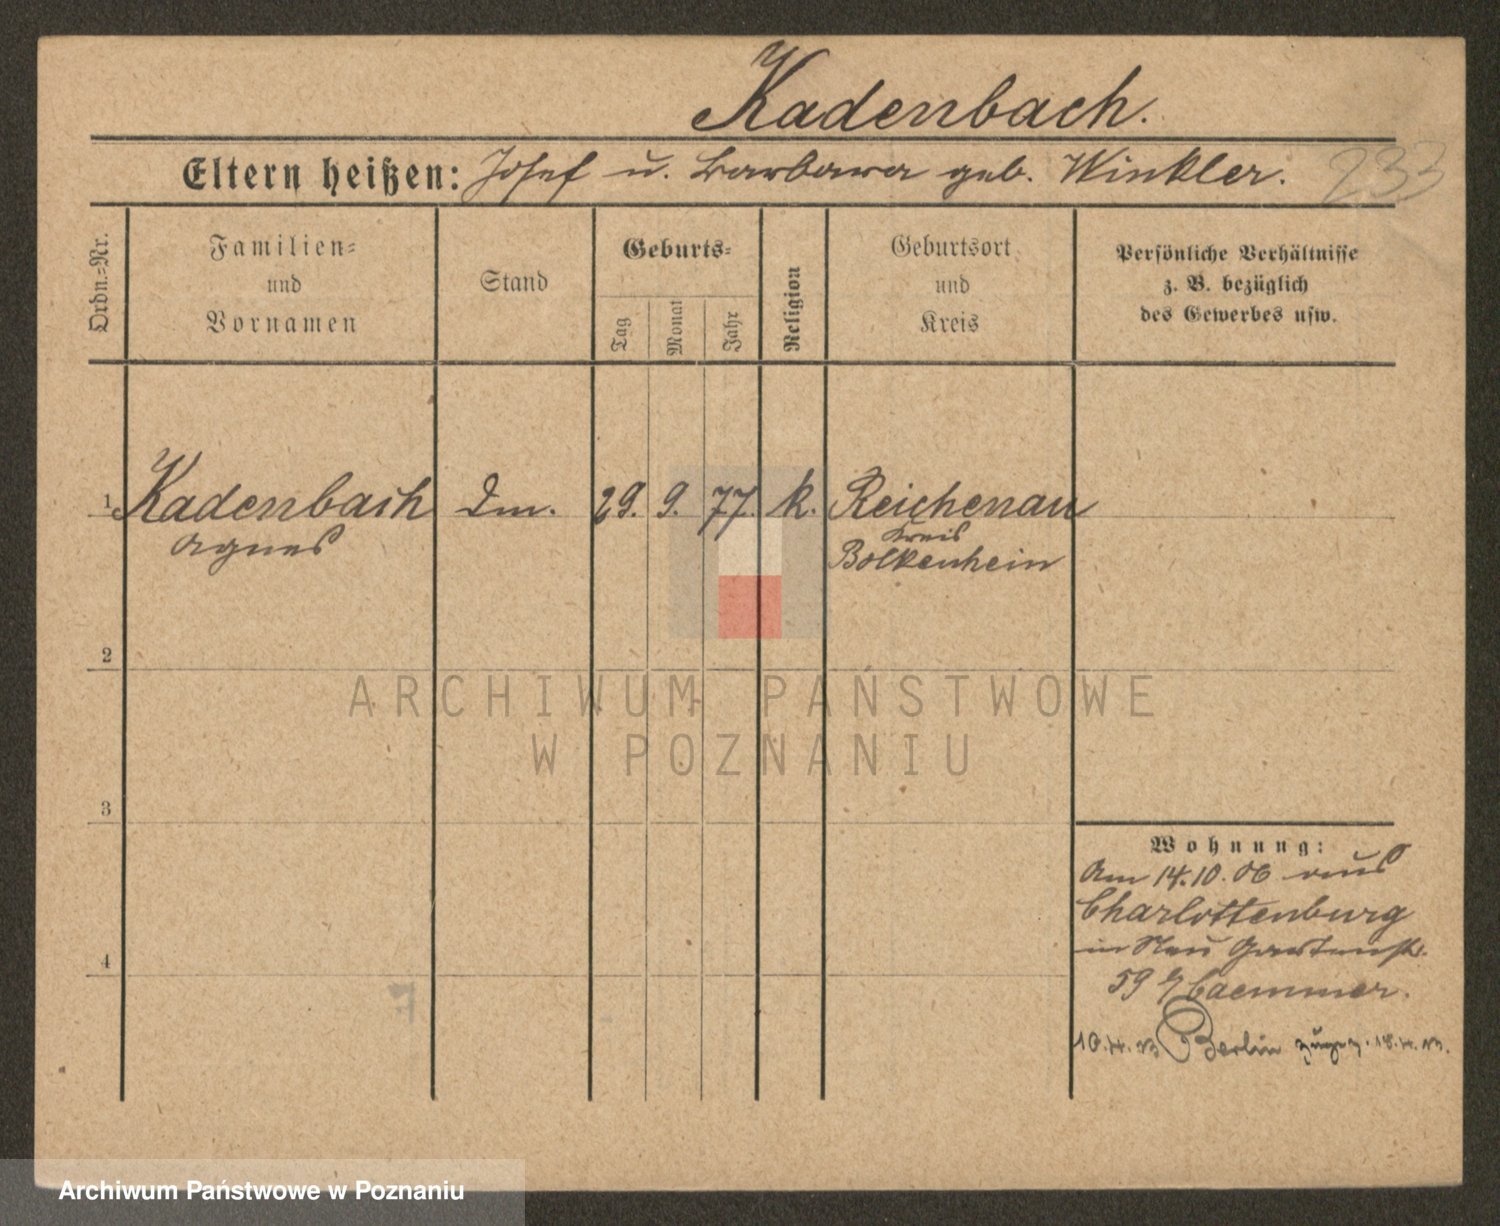 Kadenbach.
Eltern heißen: Josef u. Barbara geb. Winkler. 233
Ordn.=Nr.
Familien=
und
Vornamen
Stand
Geburts=
Tag
Monat
Jahr
Religion
Geburtsort
und
Kreis
Persönliche Verhältnisse
z. B. bezüglich
des Gewerbes usw.
1 Kadenbach Dm. 29. 9. 77. k. Reichenau
Agnes Kreis
Bolkenhein
2
ARCHIWUM PAŃSTWOWE
W POZNANIU
3
Wohnung:
Am 14.10.06 aus
Charlottenburg
in Neu Gartenstr.
4
59 b/ Caemmer.
Berlin
Archiwum Państwowe w Poznaniu